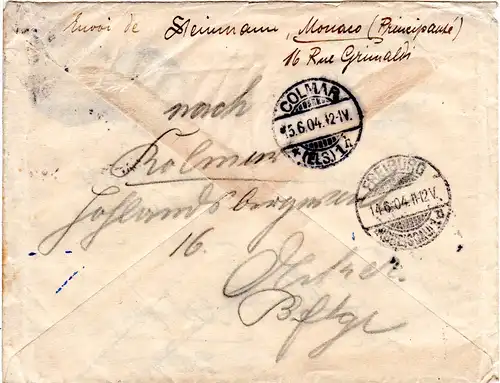 Envoi de Steinmann, Monaco (Principauté)
16 Rue Grimaldi
COLMAR
15.6.04.12-1V.
* (ELS.) 1 d
nach
Kolmar
FREIBURG
14.6.04.11-12V.
(BREISGAU)
16.